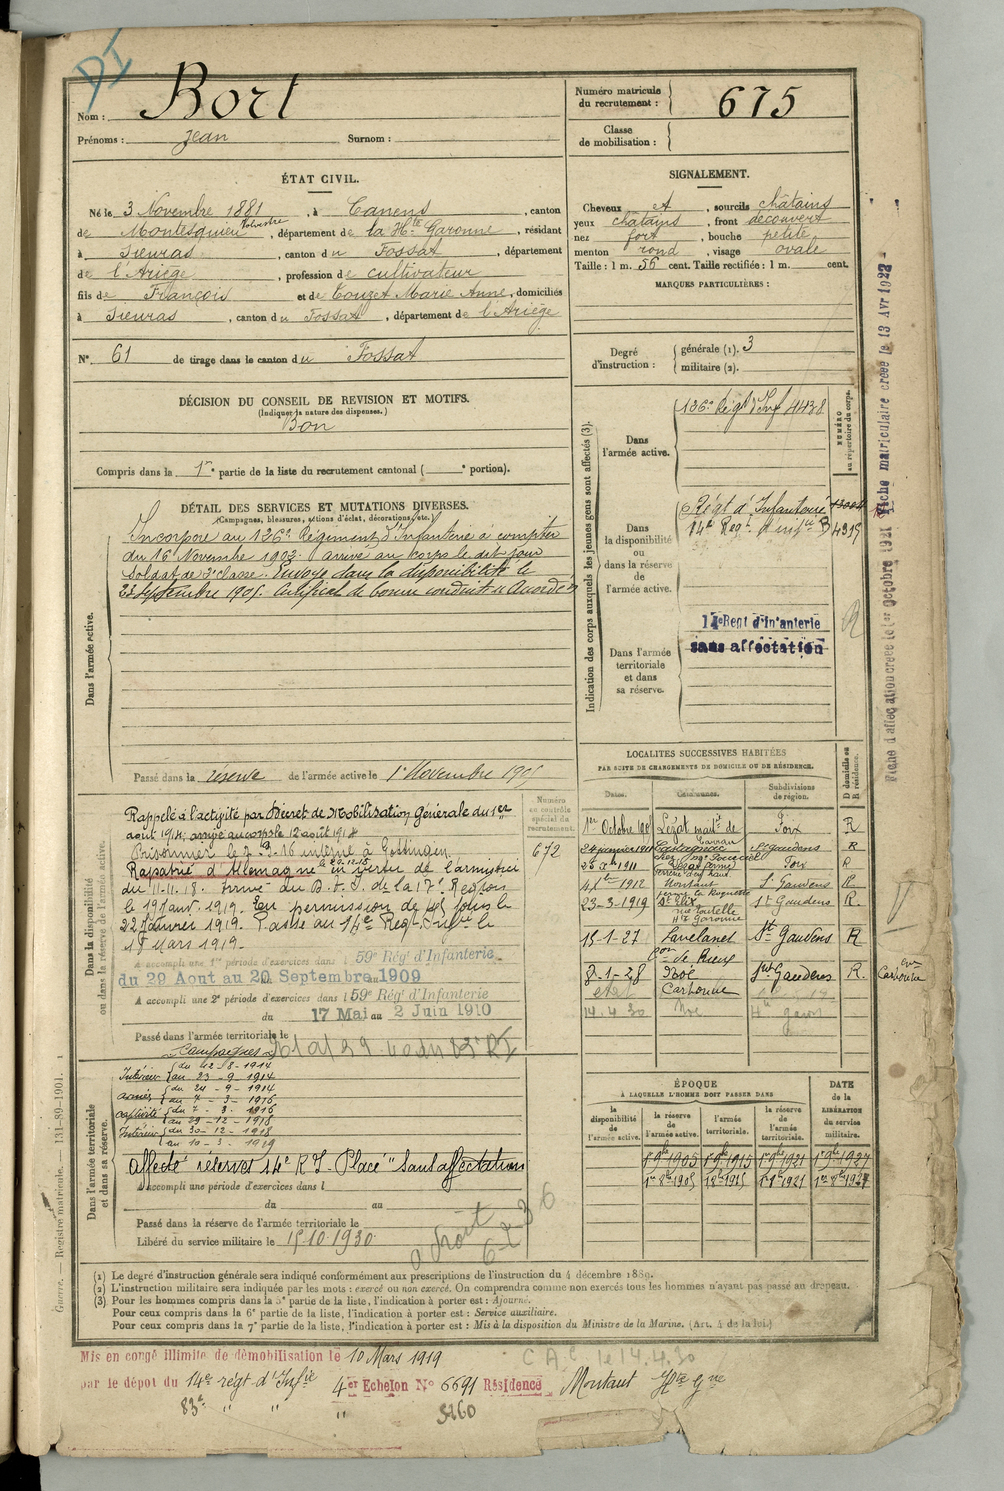 DI
Nom : Bort
Prénoms : Jean Surnom :
Numéro matricule du recrutement : 675
Classe de mobilisation :
ÉTAT CIVIL.
Né le 3 Novembre 1881, à Canens, canton
de Montesquieu Volvestre, département de la Hte Garonne, résidant
à Sieuras, canton du Fossat, département
de l'Ariège, profession de cultivateur
fils de François et de Touzet Marie Anne, domiciliés
à Sieuras, canton du Fossat, département de l'Ariège
N° 61 de tirage dans le canton du Fossat
SIGNALEMENT.
Cheveux et, sourcils châtains
yeux châtains, front découvert
nez fort, bouche petite
menton rond, visage ovale
Taille : 1 m. 56 cent. Taille rectifiée : 1 m. cent.
MARQUES PARTICULIÈRES :
Degré d'instruction : générale (1). 3
militaire (2).
DÉCISION DU CONSEIL DE REVISION ET MOTIFS.
(Indiquer la nature des dispenses.)
Bon
Compris dans la 1re partie de la liste du recrutement cantonal ( e portion).
DÉTAIL DES SERVICES ET MUTATIONS DIVERSES.
(Campagnes, blessures, actions d'éclat, décorations, etc.)
Dans l'armée active.
Incorporé au 136e Régiment d'Infanterie à compter
du 16 Novembre 1902. arrivé au corps le dit jour
Soldat de 2e classe. Envoyé dans la disponibilité le
23 septembre 1905. Certificat de bonne conduite Accordé
Passé dans la réserve de l'armée active le 1er Novembre 1905
Indication des corps auxquels les jeunes gens sont affectés (3).
NUMÉRO au répertoire du corps.
Dans l'armée active.
136e Régt d'Inf 4438
Dans la disponibilité ou dans la réserve de l'armée active.
Régt d'Infanterie
14e Regt d'infie B 4395
Dans l'armée territoriale et dans sa réserve.
14e Regt d'Infanterie
sans affectation
Fiche d'affectation créée le 1er Octobre 1921 Fiche matriculaire créée le 13 Avr 1922
LOCALITÉS SUCCESSIVES HABITÉES
PAR SUITE DE CHANGEMENTS DE DOMICILE OU DE RÉSIDENCE.
Dates. Communes. Subdivisions de région. D domicile ou R résidence.
1er Octobre 1908 Lézat Foix R
24 janvier 1911 Castagnac St Gaudens R
1911 Foix R
1912 Montaut St Gaudens R
23-3-1919 St Elix St Gaudens R.
Hte Garonne
15-1-27 Lavelanet St Gaudens R
con de Rieux
8-1-28 Noé St Gaudens R.
con Carbonne
Carbonne
14.4.30 Noé Hte Garon
Numéro au contrôle spécial du recrutement.
672
Dans la disponibilité ou dans la réserve de l'armée active.
Rappelé à l'activité par Décret de Mobilisation Générale du 1er
août 1914; arrivé au corps le 12 août 1914
Prisonnier le 7.3.16 interné à Gottingen
Rapatrié d'Allemagne le 29.12.18 en vertu de l'armistice
du 11.11.18. Arrivé au D.T.I. de la 17e Région
le 19 Janv. 1919. En permission de jours le
22 Janvier 1919. Passé au 14e Reg. Infie le
1 Mars 1919.
A accompli une 1re période d'exercices dans l 59e Rég' d'Infanterie
du 29 Aout au 20 Septembre 1909
A accompli une 2e période d'exercices dans l 59e Rég' d'Infanterie
du 17 Mai au 2 Juin 1910
Passé dans l'armée territoriale le
Dans l'armée territoriale et dans sa réserve.
Campagnes
Intérieur du 12-8-1914
au 23-9-1914
armées du 24-9-1914
au 7-3-1916
captivité du 7-3-1916
au 29-12-1918
Intérieur du 30-12-1918
au 10-3-1919
Affecté réserves 14e R.I. Placé "Sans affectation
A accompli une période d'exercices dans l
du au
Passé dans la réserve de l'armée territoriale le
Libéré du service militaire le 15.10.1930
a droit
ÉPOQUE
À LAQUELLE L'HOMME DOIT PASSER DANS
la disponibilité de l'armée active. la réserve de l'armée active. l'armée territoriale. la réserve de l'armée territoriale. DATE de la LIBÉRATION du service militaire.
1er 9bre 1905 1er 9bre 1915 1er 9bre 1921 1er 9bre 1927
1er 8bre 1905 1er 8bre 1915 1er 8bre 1921 1er 8bre 1927
(1) Le degré d'instruction générale sera indiqué conformément aux prescriptions de l'instruction du 4 décembre 1889.
(2) L'instruction militaire sera indiquée par les mots : exercé ou non exercé. On comprendra comme non exercés tous les hommes n'ayant pas passé au drapeau.
(3) Pour les hommes compris dans la 5e partie de la liste, l'indication à porter est : Ajourné.
Pour ceux compris dans la 6e partie de la liste, l'indication à porter est : Service auxiliaire.
Pour ceux compris dans la 7e partie de la liste, l'indication à porter est : Mis à la disposition du Ministre de la Marine. (Art. 4 de la loi.)
Guerre. — Registre matricule. 131-89-1901.
Mis en congé illimité de démobilisation le 10 Mars 1919
C A C le 14.4.30
par le dépot du 14e régt d'Infie 4er Echelon N° 6691 Résidence Montaut Hte Gne
83e " " " 5260